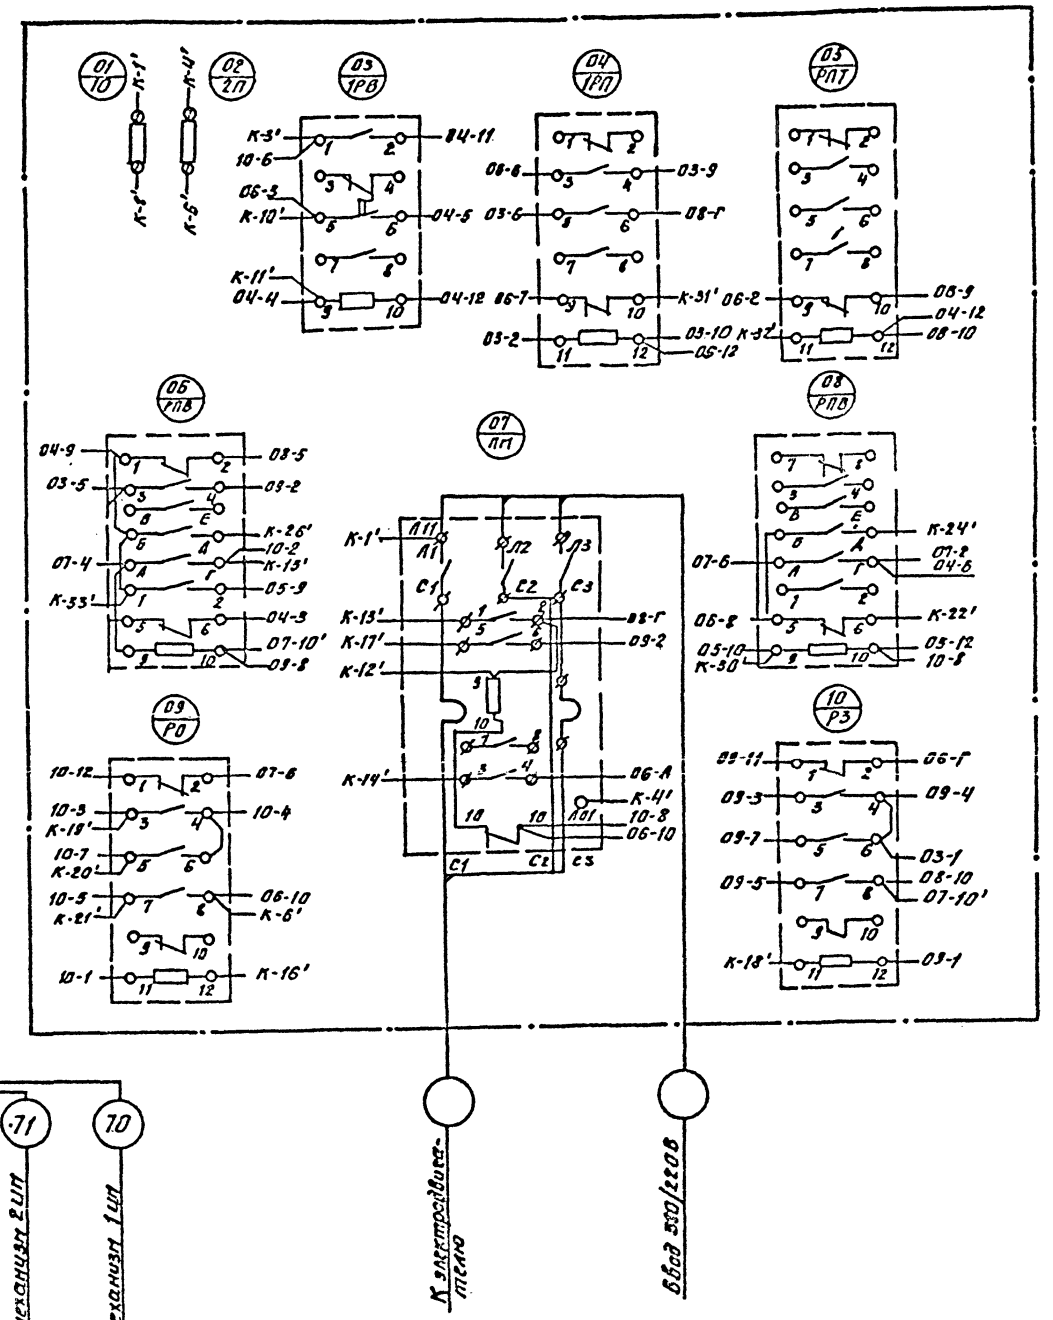 01
ПО
К-1'
К-8'
К-4'
К-6'
02
2П
03
1РВ
К-3'
10-6
1
2
04-11
3
4
06-3
К-10'
5
6
04-5
7
8
К-11'
04-4
9
10
04-12
04
1РП
1
2
06-8
3
4
03-9
03-6
5
6
08-Г
7
8
06-7
9
10
К-31'
03-2
11
12
03-10
06-12
05
РПТ
1
2
3
4
5
6
7
8
06-2
9
10
08-9
К-32'
11
12
04-12
08-10
06
РПВ
04-9
1
2
08-5
03-5
3
4
09-2
В
Е
Б
Д
К-26'
07-4
А
Г
10-2
К-13'
К-33'
1
2
05-9
5
6
04-3
9
10
07-10'
09-8
07
ЛП
К-1'
Л11
Л1
Л2
Л3
С1
С2
С3
К-13'
1
2
5
08-Г
К-17'
6
09-2
К-12'
9
10
7
8
К-14'
3
4
06-А
К-4'
Л01
10
10
10-8
06-10
С1
С2
С3
08
РПВ
7
8
3
4
В
Е
Б
Д
К-24'
07-6
А
Г
07-2
04-6
1
2
06-8
5
6
К-22'
05-10
К-30'
9
10
05-12
10-8
09
РО
10-12
1
2
07-6
10-3
К-19'
3
4
10-4
10-7
К-20'
5
6
10-5
К-21'
7
8
06-10
К-6'
9
10
10-1
11
12
К-16'
10
РЗ
09-11
1
2
06-Г
09-3
3
4
09-4
09-7
5
6
03-1
09-5
7
8
08-10
07-10'
9
10
К-18'
11
12
09-1
71
70
механизм 2ИМ
механизм 1ИМ
К электродвига-
телю
Ввод 380/220В